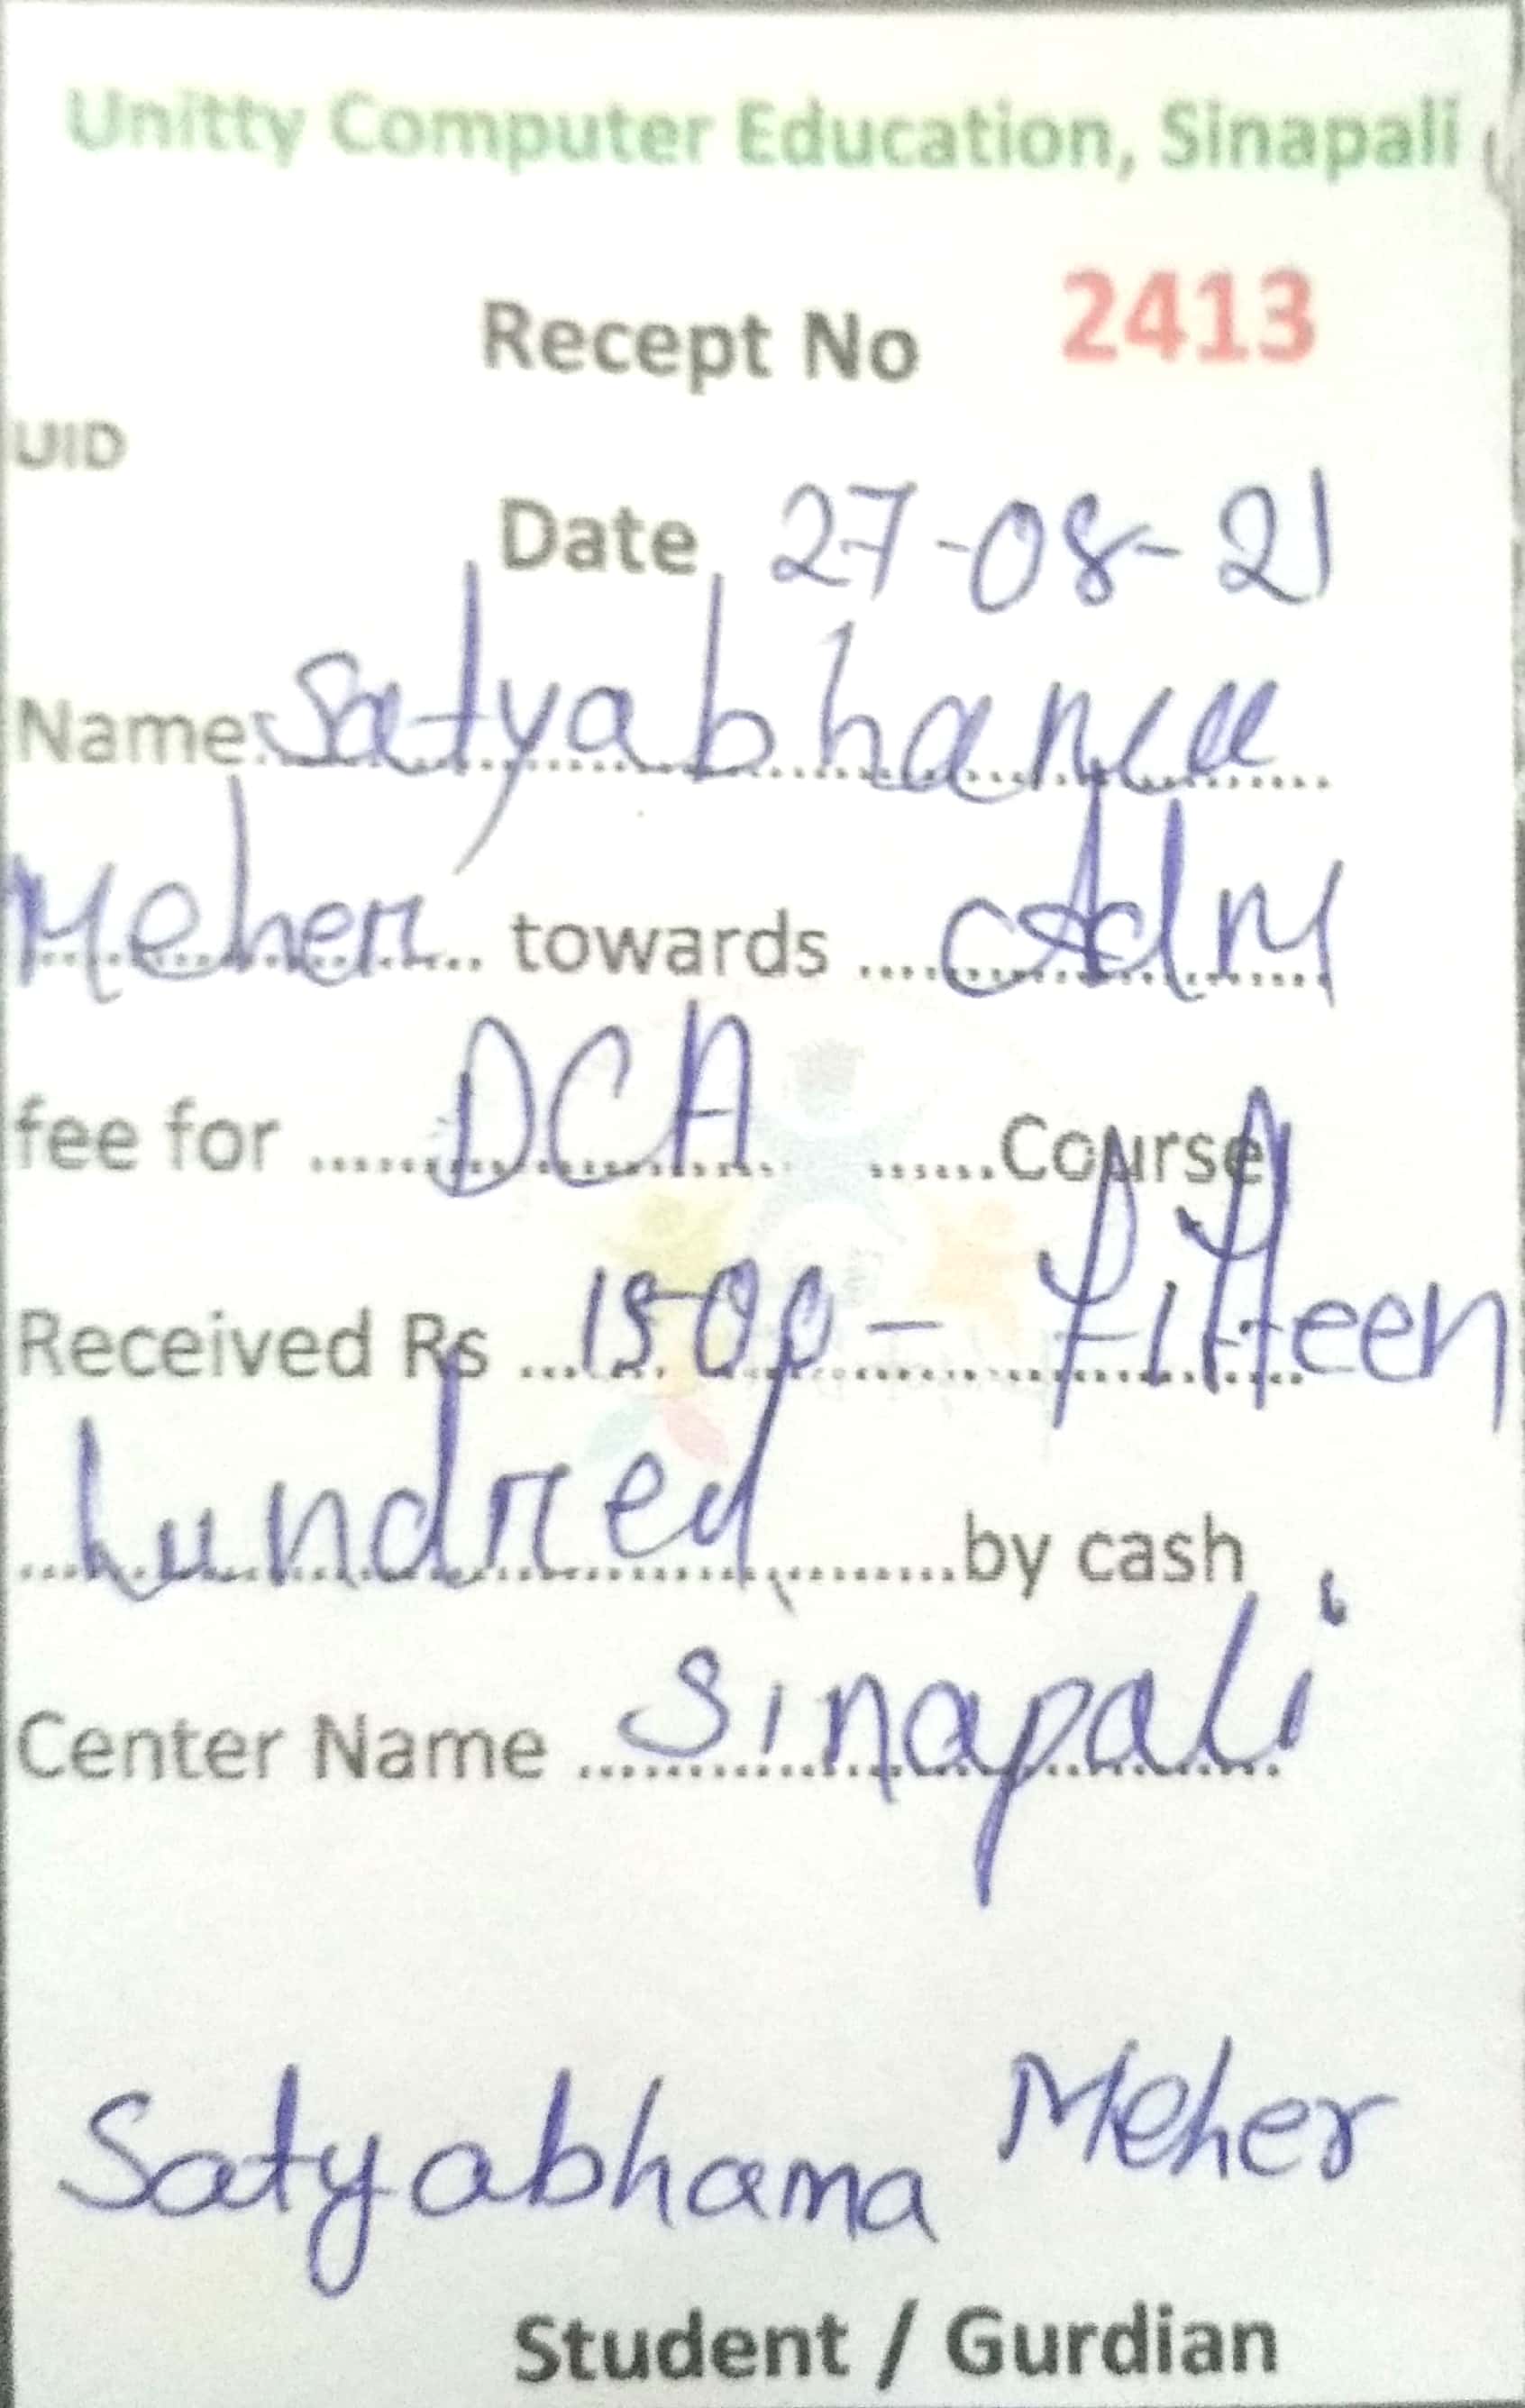 Unitty Computer Education, Sinapali
Recept No 2413
UID
Date 27-08-21
Name: Satyabhama
Meher towards Adm
fee for DCA Course
Received Rs 1500 - Fifteen
hundred by cash
Center Name Sinapali
Satyabhama Meher
Student / Gurdian